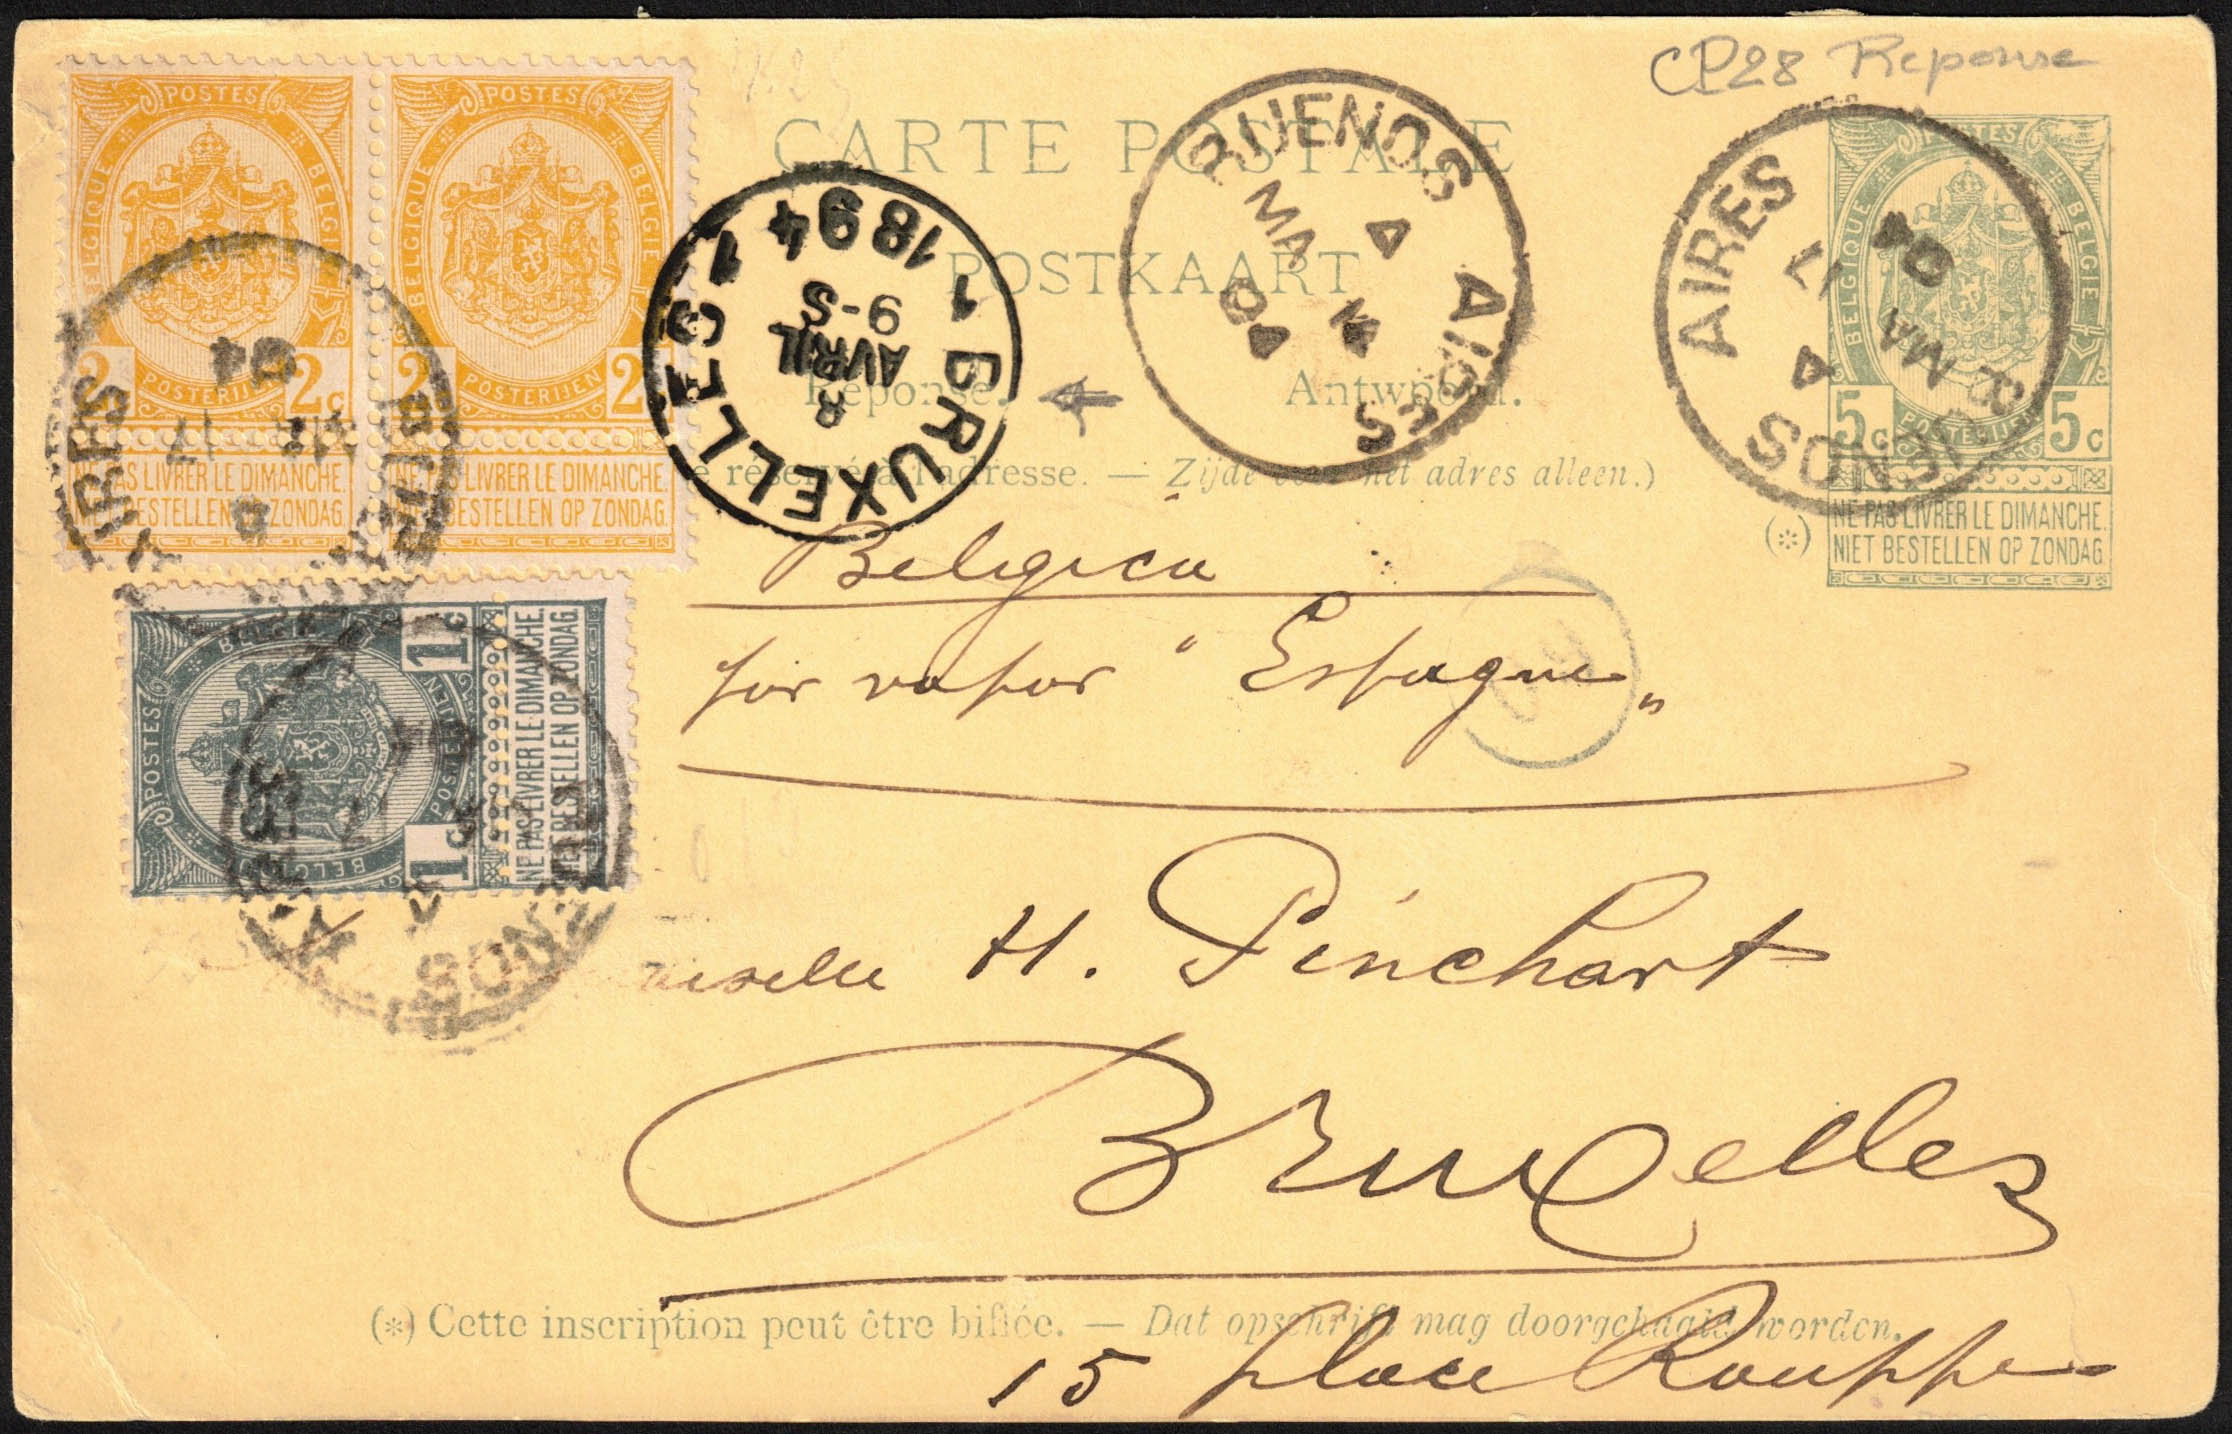 CP28 Reponse
CARTE POSTALE
POSTKAART
Réponse. Antwoord.
réservé à l'adresse. — Zijde voor het adres alleen.)
POSTES
BELGIQUE
BELGIE
2c 2c
POSTERIJEN
NE PAS LIVRER LE DIMANCHE.
NIET BESTELLEN OP ZONDAG.
POSTES
BELGIQUE
BELGIE
2c 2
POSTERIJEN
NE PAS LIVRER LE DIMANCHE.
NIET BESTELLEN OP ZONDAG.
POSTES
BELGIQUE
BELGIE
1c 1c
POSTERIJEN
NE PAS LIVRER LE DIMANCHE.
NIET BESTELLEN OP ZONDAG.
POSTES
BELGIQUE
BELGIE
5c 5c
POSTERIJEN
(*) NE PAS LIVRER LE DIMANCHE.
NIET BESTELLEN OP ZONDAG.
1 BRUXELLES 1
8
AVRIL
9-S
1894
BUENOS AIRES
MA
94
BUENOS AIRES
17
MA
94
BUENOS AIRES
17
94
BUENOS AIRES
17
Belgica
por vapor "Espagne"
H. Pinchart
Bruxelles
(*) Cette inscription peut être biffée. — Dat opschrift mag doorgehaald worden.
15 place Rouppe